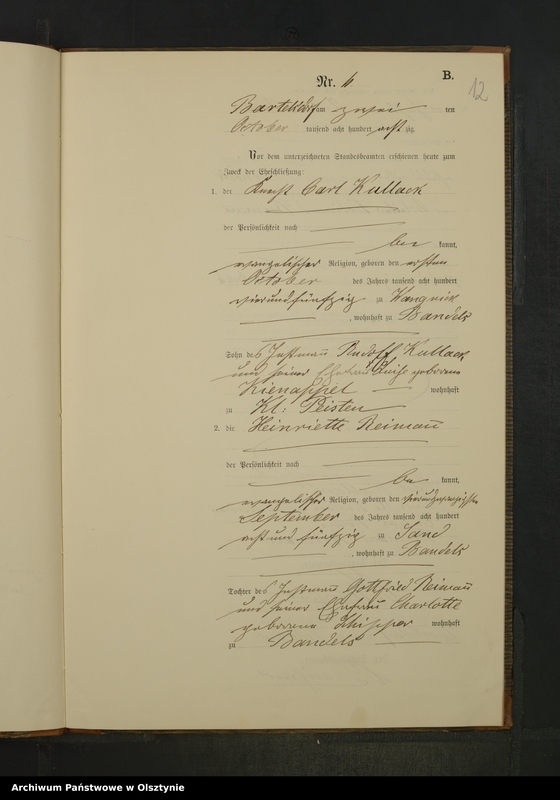 B.
12
Nr. 11
Bartelsdorf am zwei ten
October tausend acht hundert acht zig.
Vor dem unterzeichneten Standesbeamten erschienen heute zum
Zweck der Eheschließung:
1. der Knecht Carl Kullack
der Persönlichkeit nach
be kannt,
evangelischer Religion, geboren den ersten
October des Jahres tausend acht hundert
vierundfünfzig zu Wangnick
, wohnhaft zu Bandels
Sohn des Instmann Rudolf Kullack
und seiner Ehefrau Luise geborene
Kienappel wohnhaft
zu Kl: Peisten
2. die Heinriette Reimann
der Persönlichkeit nach
be kannt,
evangelischer Religion, geboren den vierundzwanzigsten
September des Jahres tausend acht hundert
acht und fünfzig zu Sand
, wohnhaft zu Bandels
Tochter des Instmann Gottfried Reimann
und seiner Ehefrau Charlotte
geborene Schipper wohnhaft
zu Bandels
Archiwum Państwowe w Olsztynie